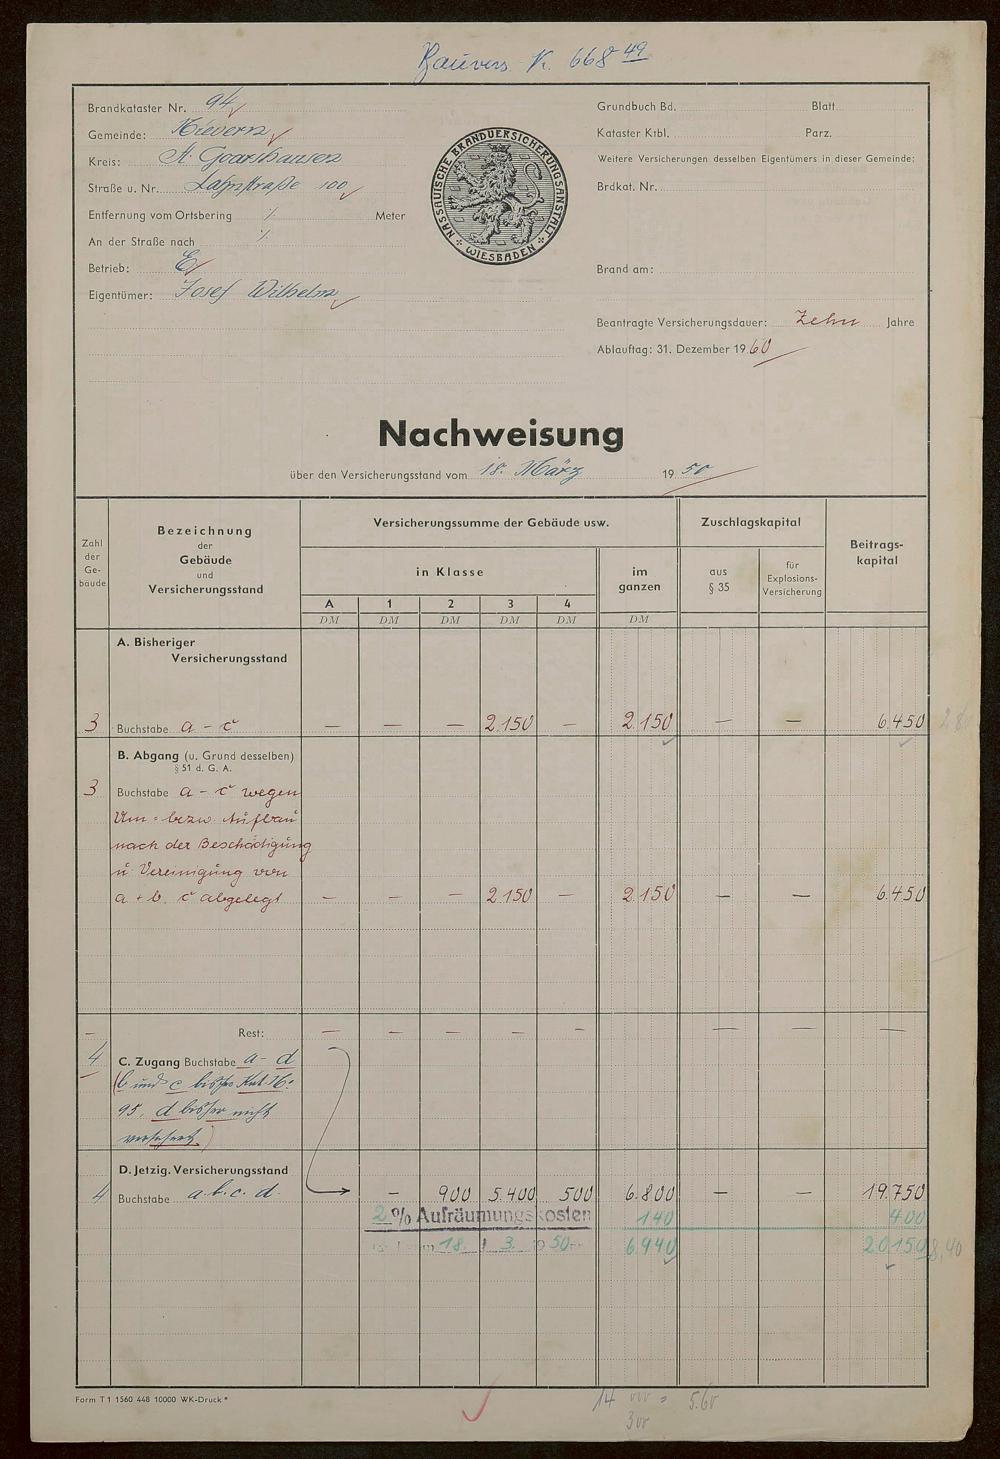 Bauvers. N. 668 49
Brandkataster Nr. 94
Gemeinde: Nievern
Kreis: St. Goarshausen
Straße u. Nr. Lahnstraße 100
Entfernung vom Ortsbering ./. Meter
An der Straße nach ./.
Betrieb: E
Eigentümer: Josef Wilhelm
NASSAUISCHE BRANDVERSICHERUNGSANSTALT
WIESBADEN
Grundbuch Bd. Blatt
Kataster Ktbl. Parz.
Weitere Versicherungen desselben Eigentümers in dieser Gemeinde:
Brdkat. Nr.
Brand am:
Beantragte Versicherungsdauer: Zehn Jahre
Ablauftag: 31. Dezember 1960
Nachweisung
über den Versicherungsstand vom 18. März 1950
Zahl der Ge- bäude
Bezeichnung
der
Gebäude
und
Versicherungsstand
Versicherungssumme der Gebäude usw.
in Klasse
A 1 2 3 4
im ganzen
DM DM DM DM DM DM
Zuschlagskapital
aus § 35
für Explosions- Versicherung
Beitrags- kapital
A. Bisheriger
Versicherungsstand
3 Buchstabe a - c — — — 2.150 — 2.150 — — 6.450
B. Abgang (u. Grund desselben)
§ 51 d. G. A.
3 Buchstabe a - c wegen
Um- bezw. Aufbau
nach der Beschädigung
u. Vereinigung von
a + b, c abgelegt — — — 2.150 — 2.150 — — 6.450
— Rest: — — — — — — — — —
4 C. Zugang Buchstabe a - d
(b und c bisher Kat. No.
95, d bisher nicht
versichert)
D. Jetzig. Versicherungsstand
4 Buchstabe a. b. c. d. - 900 5.400 500 6.800 — — 19.750
2 % Aufräumungskosten 140 400
18. 3. 1950 6.940 20.150 8,40
Form T 1 1560 448 10000 WK-Druck *
5.60